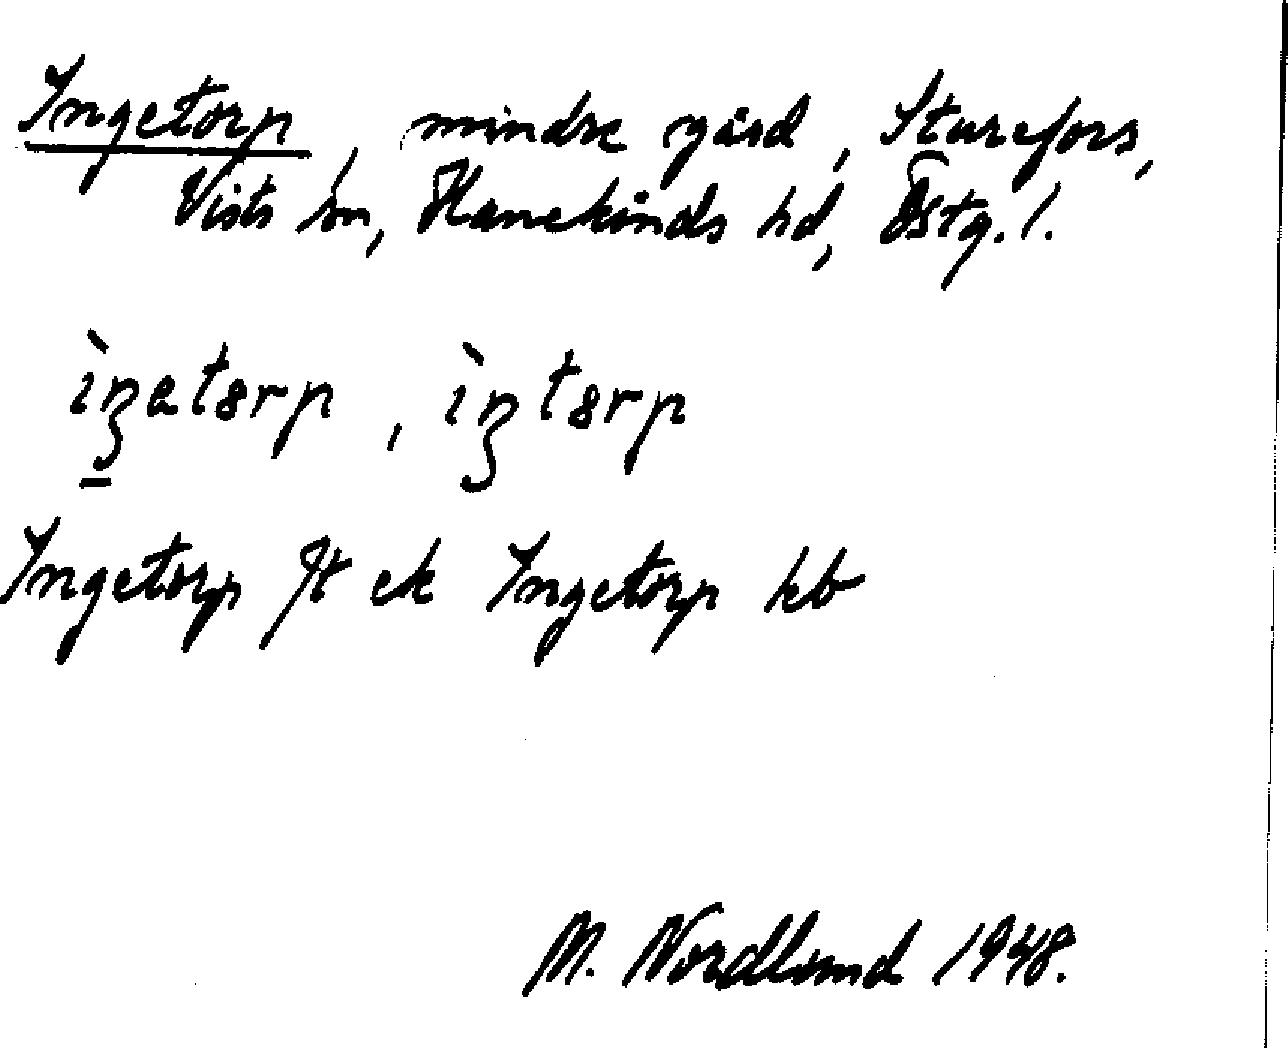 Ingetorp, mindre gård, Sturefors,
Vists sn, Hanekinds hd, Östg. l.
ìŋetorp, ìŋtorp
Ingetorp Jt ek Ingetorp kb
M. Nordlund 1948.